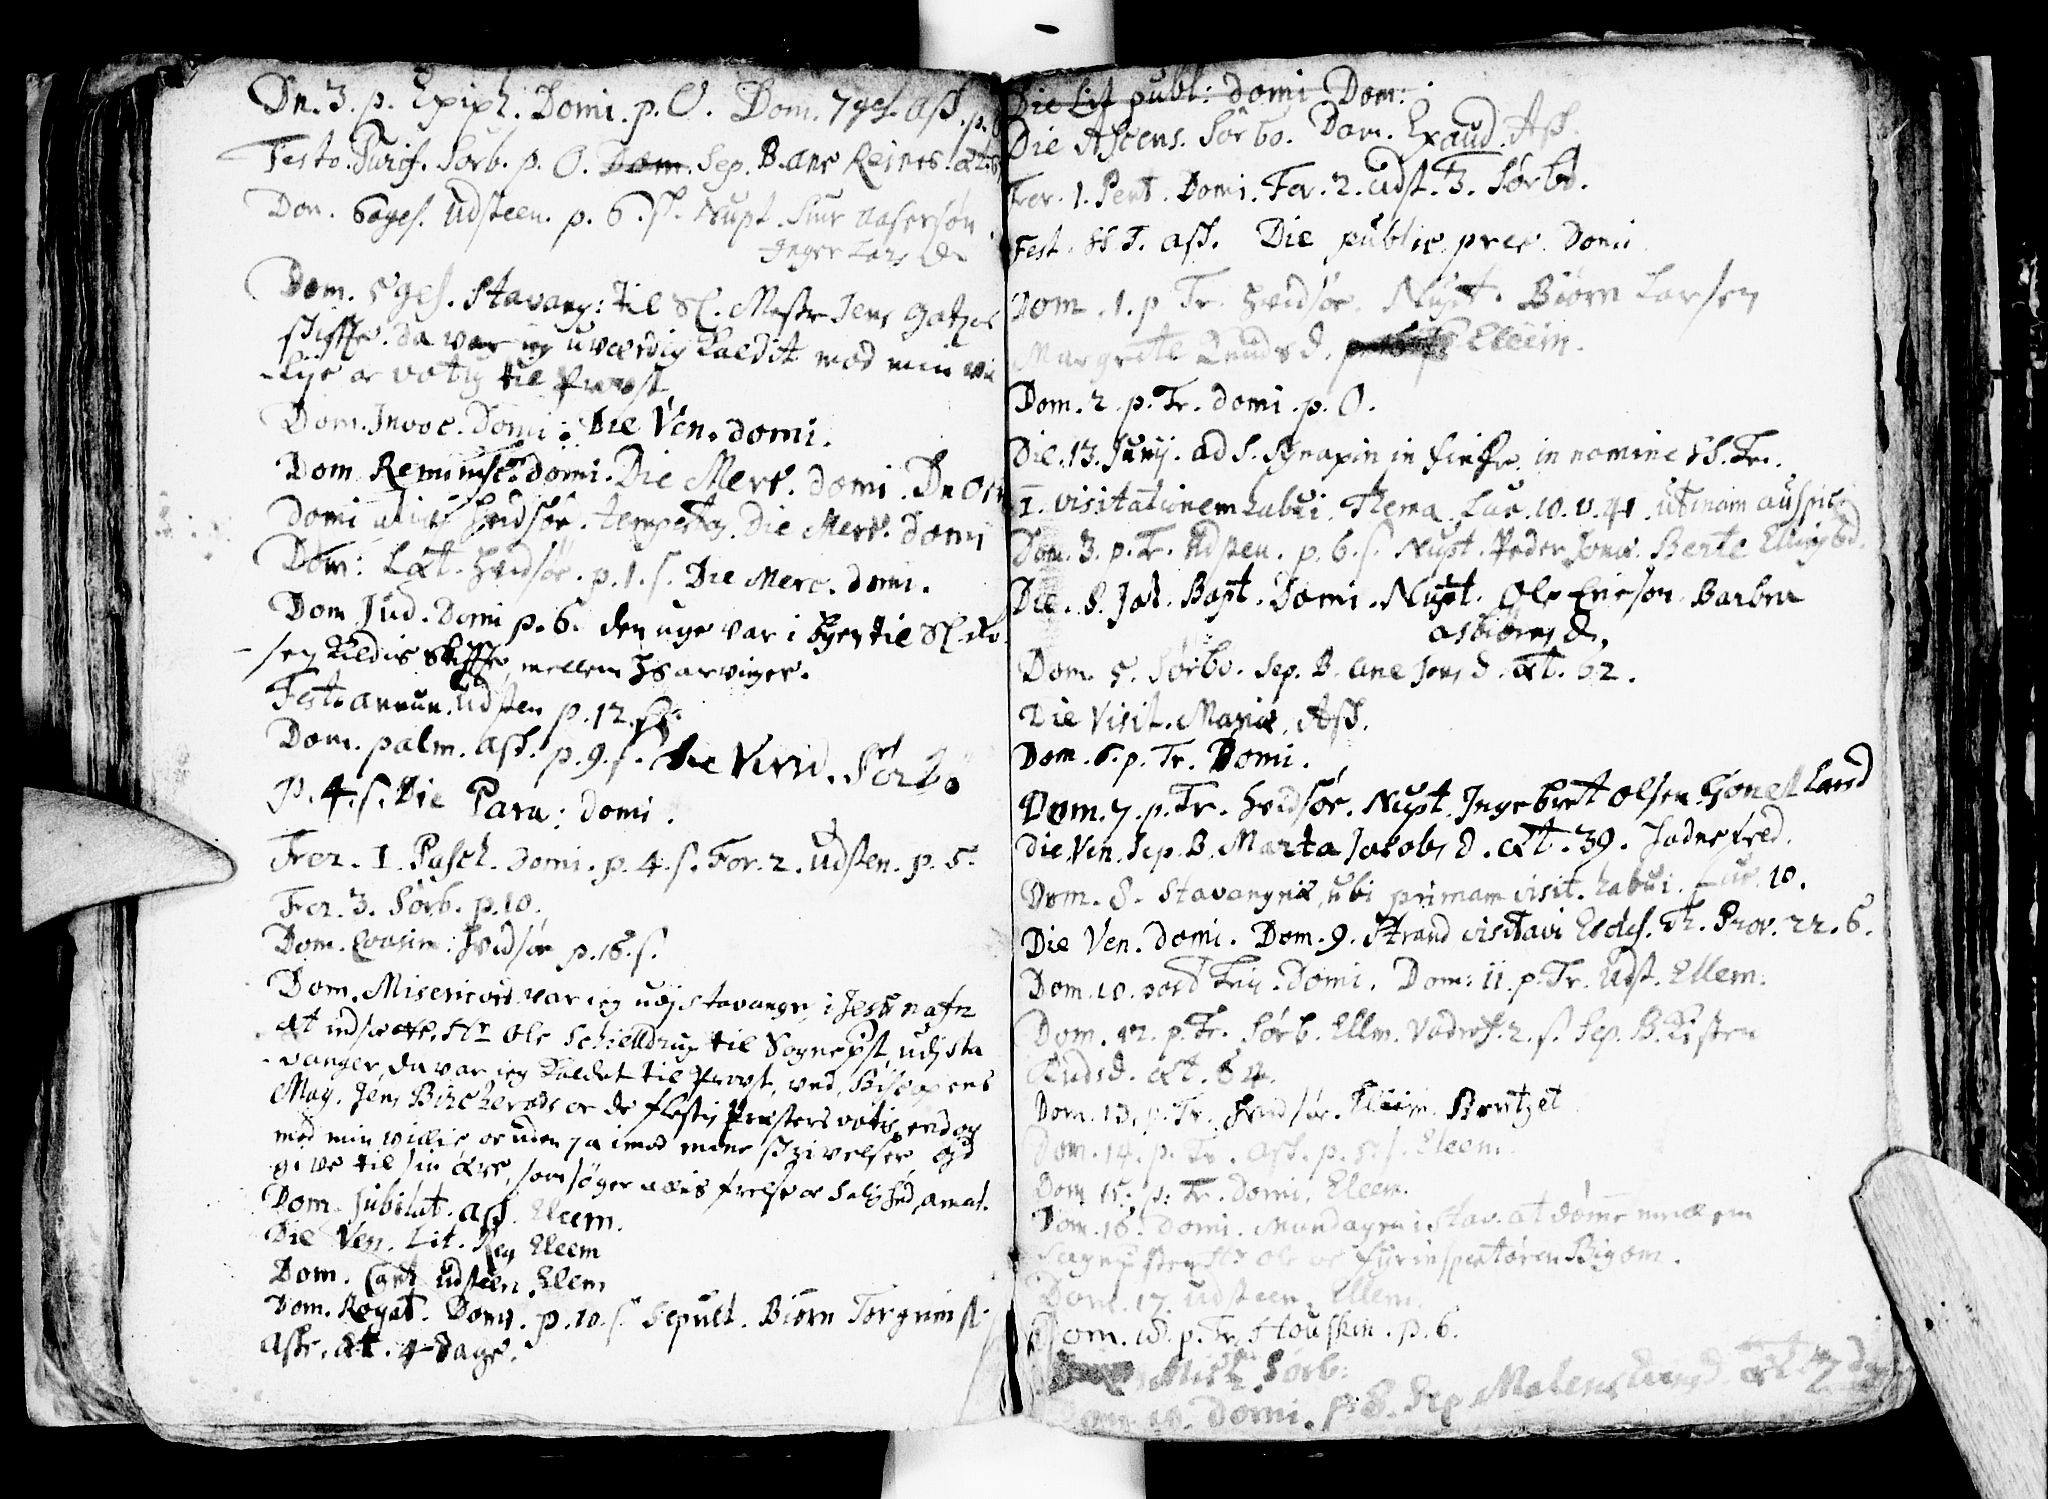 Dn. 3. p. Epiph. Domi. p. O. Dom. 7ges. ass. p.
Festo. Purif. Sørb. p. O. Dom. Sep. B. ane Reiners. æt.
Dom. 6ages. udsteen. p. 6. s. Nupt. Siur Aasersøn
Inger Lars d.
Dom. 5ges. Stavang: til Sl. Mestr Jens Gatzes
skiffte. da var ieg uværdig kaldet mod min vi
-lije or votis til Provst.
Dom. Invoc. Domi: Die Ven. domi.
Dom Reminisc: domi. Die Merc. domi. Dn Ocu
Domi hvidsør. tempestas. Die Merc. Domi
Dom: Læt. hvidsør. p. 1. s. Die Merc. domi.
Dom Jud. Domi p. 6. den uge var i byen til Sl.
-sen Kildis skiffte, mellem hs arvinger.
Festo annun. udsten p. 12.
Dom. palm. ass. p. 9. s. Die Virid. Sørbø
p. 4. s. Die Para: domi.
Fer. 1. Pasch. Domi. p. 4. s. Fer. 2. udsten. p. 5.
Fer. 3. Sørb. p. 10.
Dom. Qvasim: hvidsør p. 16. s.
Dom. Misericord. var ieg udj stavanger, i Jesu nafn
at indsætte Hr Ole Schielldrup til Sognepst, udj sta
-vanger, da var ieg kaldet til Provst, ved Biscopens
Mag. Jens Bircherods or de flestis Præsters votis, endog
mod min villie or uden ja imod mine skrivelser, Gud
give til sin ære, som søger alles frelse or Salighed, amen.
Dom. Jubilat. ass. Eleem.
Die Ven. Lit. Reg Eleem
Dom. Cant udsteen. Elem
Dom. Rogat. Domi. p. 10. s. Sepult. Biørn Torgrims
Aske. æt. 4 dage.
Die Lit publ: domi Dom:
Die Ascens. Sørbo. Dom. Exaud. Ass.
Fer. 1. Pent. Domi. Fer. 2. udst. 3. Sørbø.
Fest. SS T. ass. Die public. prec. Domi
Dom. 1. p Tr. hvidsør. Nupt. Biørn Larsen
Margrete Knuds d. Eleem.
Dom. 2. p. Tr. domi. p. O.
Die. 13. Junij. ad S. in nomine SS. Tr.
1. visitationem habui. Thema. Luc. 10. v. 41. utinam auspic
Dom. 3. p. Tr. udsten. p. 6. s. Nupt. Peder Jons. Berte
Die. S. Joh. Bapt. Domi. Nupt. Ole Ericsøn Barbra
asbiørns d.
Dom. 5. Sørbo. Sep. B. Ane Jens d. æt. 62.
Die Visit. Mariæ. Ass.
Dom. 6. p. Tr. Domi.
Dom. 7. p. Tr. hvidsør. Nupt. Ingebret Olsen Land
Die. Ven. Sep. B. Marta Jacobs d. æt. 39.
Dom. 8. Stavangriæ, ubi primam visit. habui. Luc. 10.
Die Ven. domi. Dom. 9. Strand visitavi Eccles. Th. Prov. 22. 6.
Dom. 10. post Trin. Domi. Dom: 11. p. Tr. Udst. Ellem.
Dom. 12. p. Tr. Sørb. Ellm. 2. s. Sep. B. Kisten
Knudsd. æt.
Dom. 13. p. Tr. hvidsør. Eleem.
Dom. 14. p. Tr. ass. p. 5. s. Eleem.
Dom 15. p: Tr. Domi. Eleem.
Dom. 16. Domi. Mandagen i Stav. at dømme mellem
Sognepsten Hr Ole or Bigom.
Dom. 17. udsteen. Ellem.
Dom. 18. p. Tr. Houskin. p. 6.
Mich. Sørb:
Dom 19. Domi. p. 8. Sep Malene